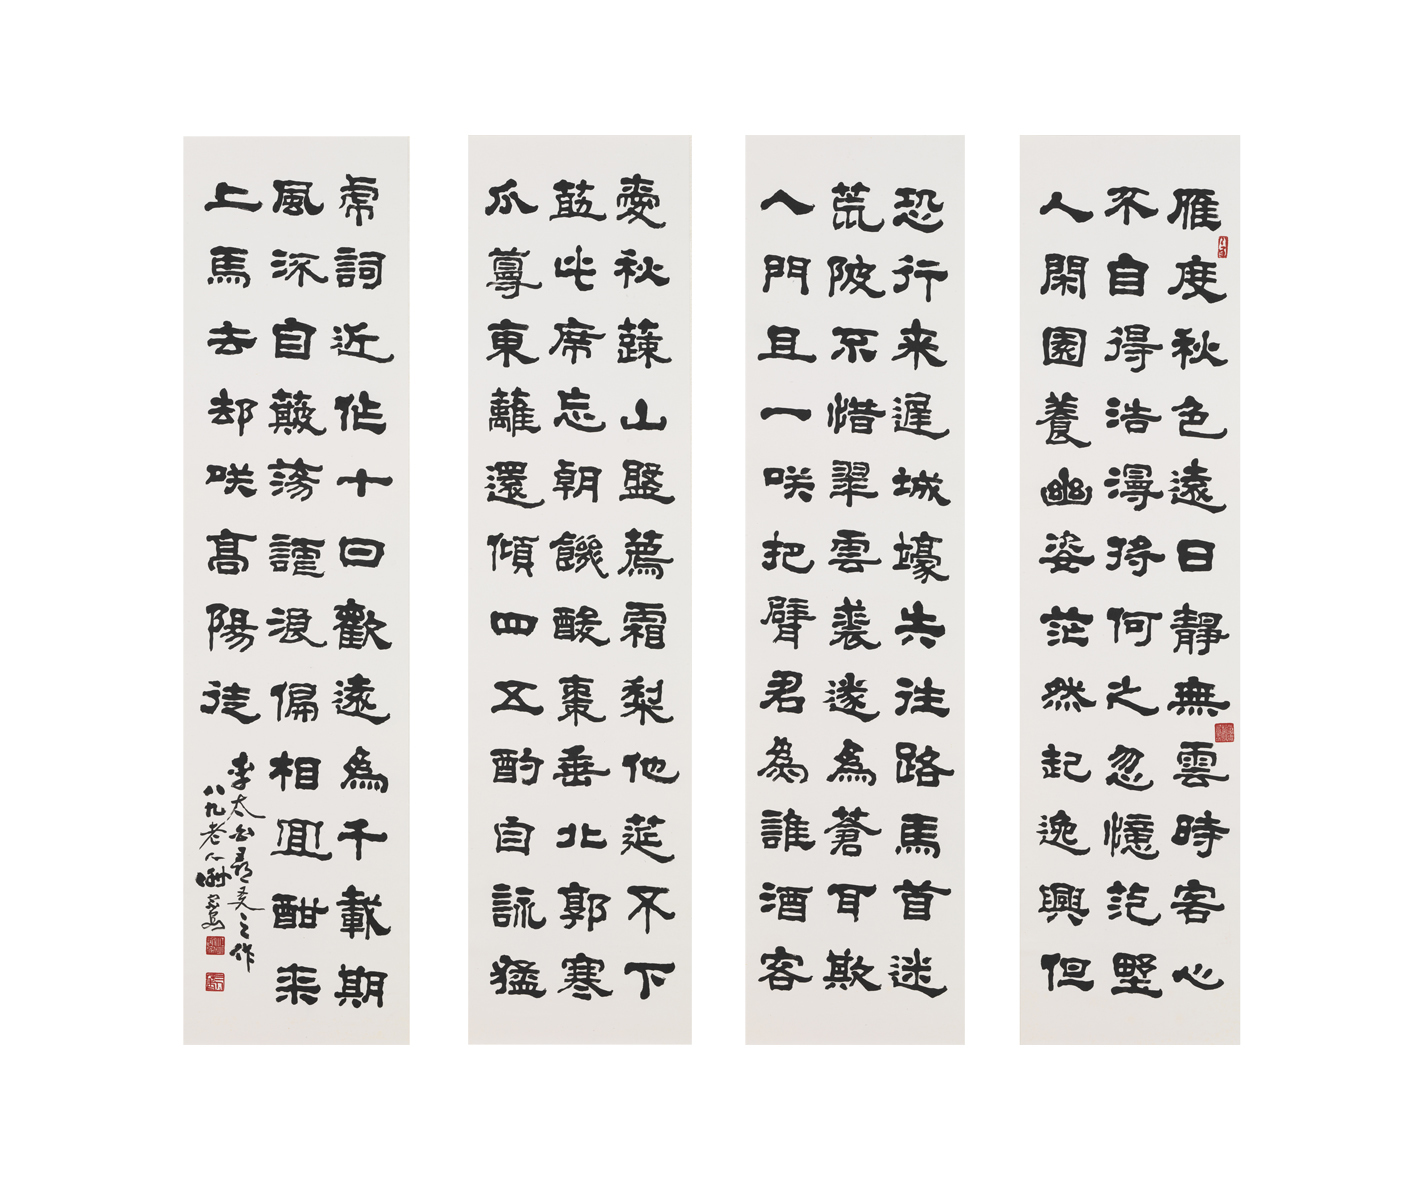 雁度秋色遠日靜無雲時客心
不自得浩漫将何之忽憶范墅
人閑園養幽姿茫然起逸興但
恐行来遲城壕失往路馬首迷
荒陂不惜翠雲裘遂為蒼耳欺
入門且一咲把臂君為誰酒客
愛秋蔬山盤薦霜梨他筵不下
筯此席忘朝饑酸棗垂北郭寒
瓜蔓東籬還傾四五酌自詠猛
虎詞近作十日歡遠為千載期
風流自簸蕩謔浪偏相宜酣来
上馬去却咲高陽徒
李太白尋之作
八九老人